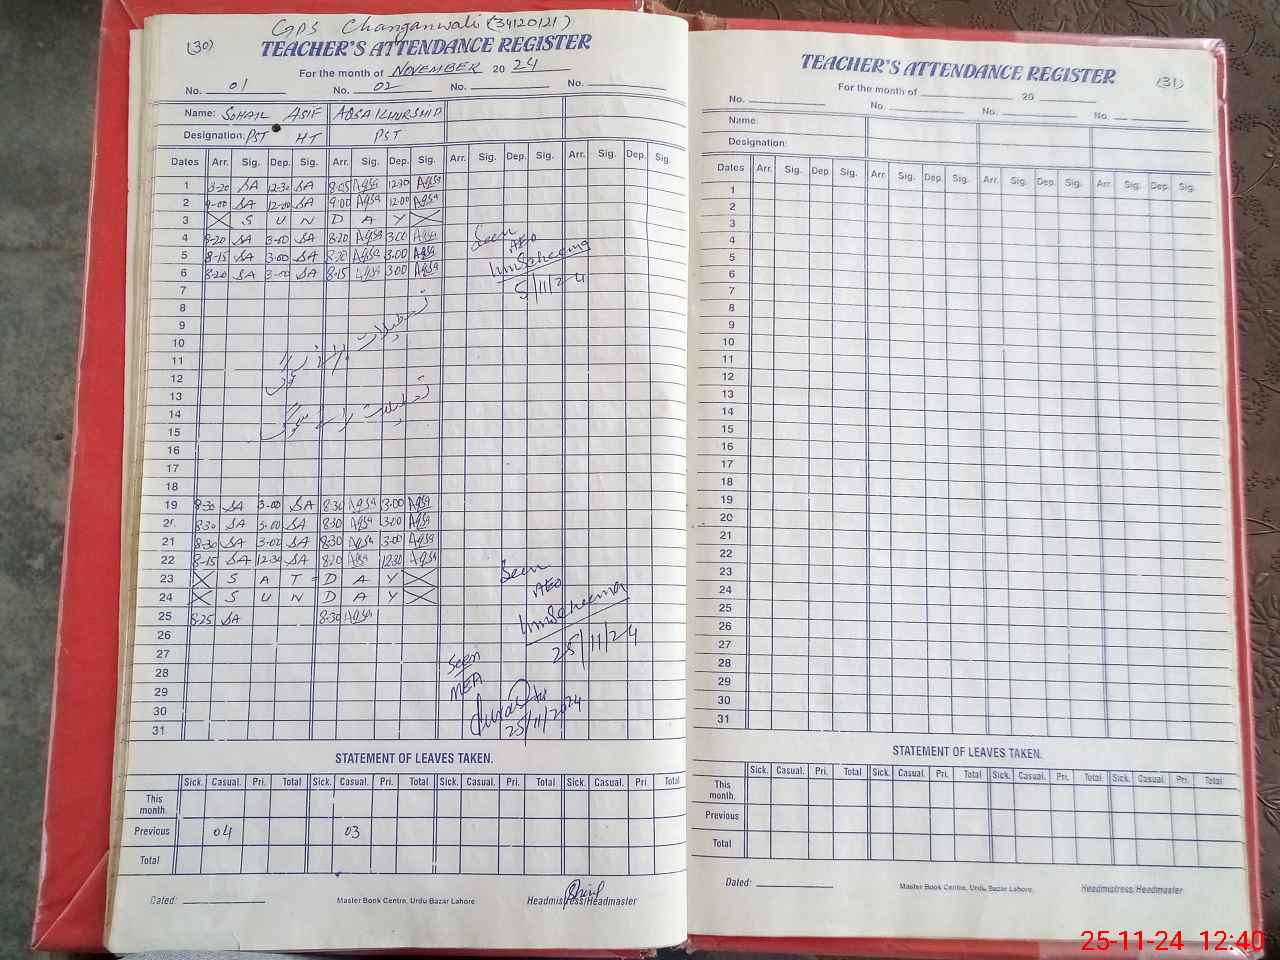 GPS Changanwali (34120121)
(30)
TEACHER'S ATTENDANCE REGISTER
For the month of NOVEMBER 20 24
No. 01 No. 02 No. No.
Name: SOHAIL ASIF AQSA KHURSHID
Designation: PST HT PST
Dates Arr. Sig. Dep. Sig. Arr. Sig. Dep. Sig. Arr. Sig. Dep. Sig. Arr. Sig. Dep. Sig.
1 8-20 SA 12-30 SA 8:05 Aqsa 12:30 Aqsa
2 9-00 SA 12-00 SA 9:00 Aqsa 12:00 Aqsa
3 S U N D A Y
4 8-20 SA 3-00 SA 8:20 Aqsa 3:00 Aqsa
5 8-15 SA 3-00 SA 8:20 Aqsa 3:00 Aqsa
6 8-20 SA 3-00 SA 8:15 Aqsa 3:00 Aqsa
Seen
AEO
5/11/24
7
8
9
10
11
12
13
14
15
16
17
18
تعطیلات
تعطیلات
19 8-30 SA 3-00 SA 8:30 Aqsa 3:00 Aqsa
20 8-30 SA 3-00 SA 8:30 Aqsa 3:00 Aqsa
21 8-30 SA 3-00 SA 8:30 Aqsa 3:00 Aqsa
22 8-15 SA 12-30 SA 8:20 Aqsa 12:30 Aqsa
23 S A T = D A Y
24 S U N D A Y
25 8-25 SA 8:30 Aqsa
26
27
28
29
30
31
Seen
AEO
25/11/24
Seen
MEA
25/11/2024
STATEMENT OF LEAVES TAKEN.
Sick. Casual. Pri. Total Sick. Casual. Pri. Total Sick. Casual. Pri. Total Sick. Casual. Pri. Total
This month.
Previous 04 03
Total
Dated: Master Book Centre, Urdu Bazar Lahore Headmistress/Headmaster
TEACHER'S ATTENDANCE REGISTER
(31)
For the month of 20
No. No. No. No.
Name:
Designation:
Dates Arr. Sig. Dep. Sig. Arr. Sig. Dep. Sig. Arr. Sig. Dep. Sig. Arr. Sig. Dep. Sig.
1
2
3
4
5
6
7
8
9
10
11
12
13
14
15
16
17
18
19
20
21
22
23
24
25
26
27
28
29
30
31
STATEMENT OF LEAVES TAKEN.
Sick. Casual. Pri. Total Sick. Casual. Pri. Total Sick. Casual. Pri. Total Sick. Casual. Pri. Total
This month.
Previous
Total
Dated: Master Book Centre, Urdu Bazar Lahore. Headmistress/Headmaster
25-11-24 12:40